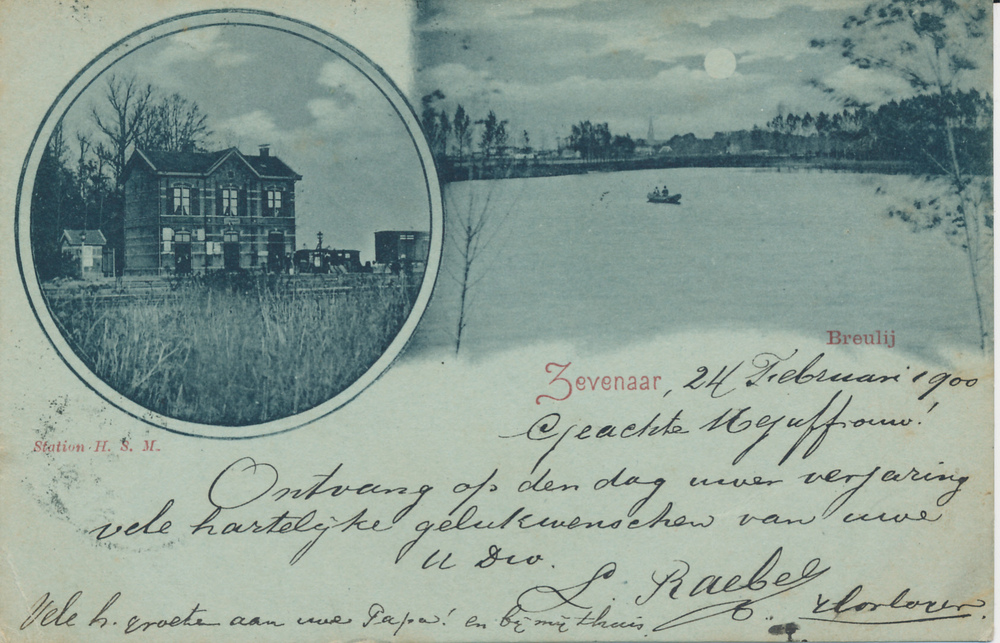 Breulij
Zevenaar, 24 Februari 1900
Station H. S. M.
Geachte Mejuffrouw!
Ontvang op den dag uwer verjaring
vele hartelijke gelukwenschen van uwe
U Dw.
L. Raebel
Vele h. groete aan uwe Papa! en bij mij thuis.